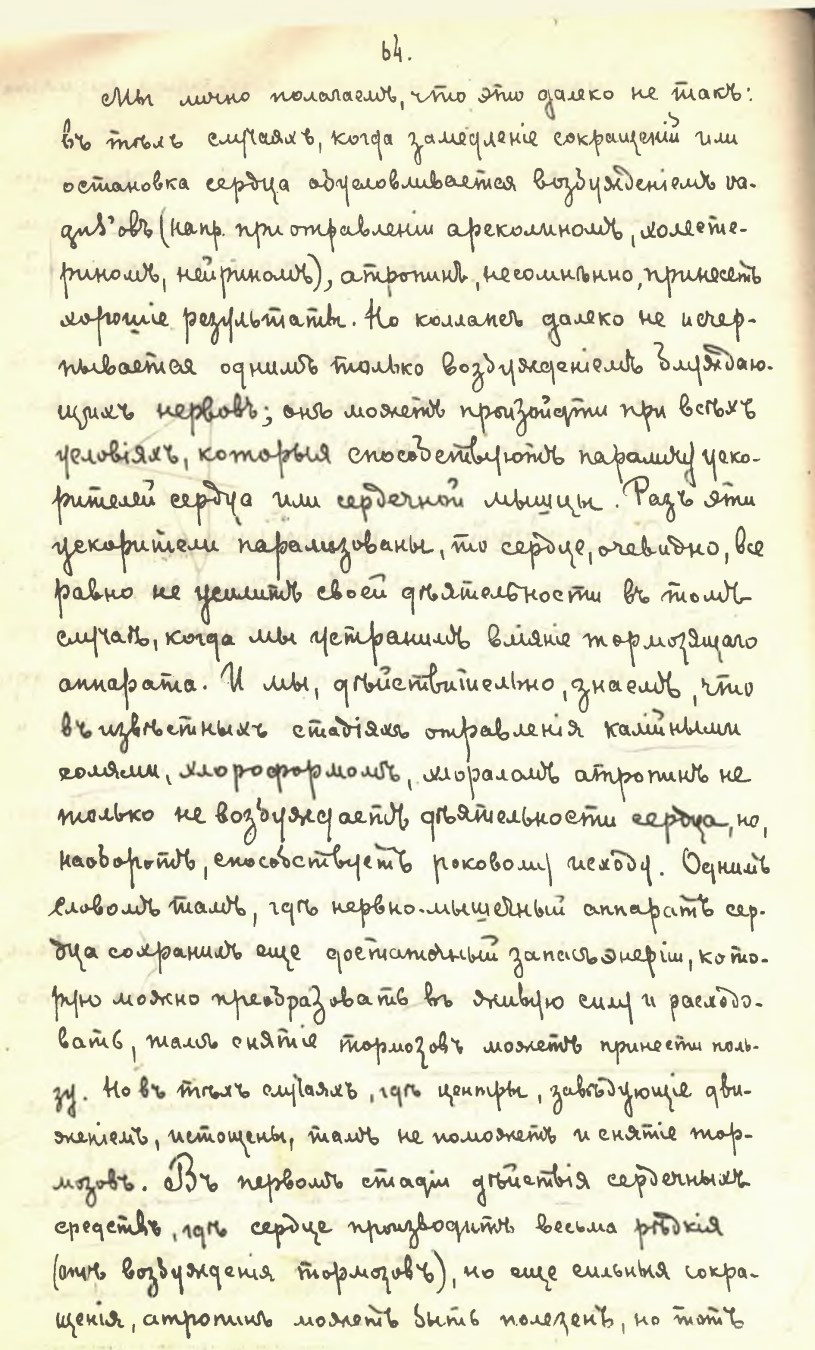 64.
Мы лично полагаемъ, что это далеко не такъ:
въ тѣхъ случаяхъ, когда замедленіе сокращеній или
остановка сердца обусловливается возбужденіемъ va-
gus'овъ (напр. при отравленіи ареколиномъ, холесте-
риномъ, нейриномъ), атропинъ, несомнѣнно, принесетъ
хорошіе результаты. Но коллапсъ далеко не исчер-
пывается однимъ только возбужденіемъ блуждаю-
щихъ нервовъ; онъ можетъ произойдти при всѣхъ
условіяхъ, которыя способствуютъ параличу уско-
рителей сердца или сердечной мышцы. Разъ эти
ускорители парализованы, то сердце, очевидно, все
равно не усилитъ своей дѣятельности въ томъ
случаѣ, когда мы устранимъ вліяніе тормозящаго
аппарата. И мы, дѣйствительно, знаемъ, что
въ извѣстныхъ стадіяхъ отравленія калійными
солями, хлороформомъ, хлораломъ атропинъ не
только не возбуждаетъ дѣятельности сердца, но,
наоборотъ, способствуетъ роковому исходу. Однимъ
словомъ тамъ, гдѣ нервно-мышечный аппаратъ сер-
дца сохранилъ еще достаточный запасъ энергіи, кото-
рую можно преобразовать въ живую силу и расходо-
вать, тамъ снятіе тормозовъ можетъ принести поль-
зу. Но въ тѣхъ случаяхъ, гдѣ центры, завѣдующіе дви-
женіемъ, истощены, тамъ не поможетъ и снятіе тор-
мозовъ. Въ первомъ стадіи дѣйствія сердечныхъ
средствъ, гдѣ сердце производитъ весьма рѣдкія
(отъ возбужденія тормозовъ), но еще сильныя сокра-
щенія, атропинъ можетъ быть полезенъ, но тотъ